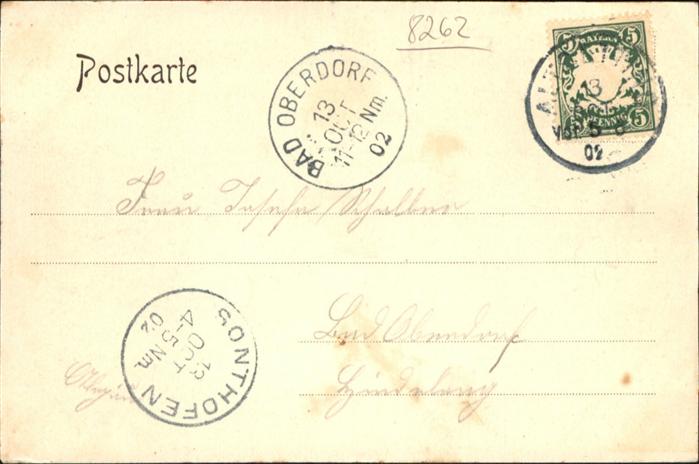 8262
Postkarte
BAD OBERDORF
13
OCT
11-12 Nm.
02
5 BAYERN 5
5 PFENNIG 5
13
Vor. 5-
02
Frau Josefa
Bad Oberdorf
Hindelang
SONTHOFEN
13
OCT
4-5 Nm.
02